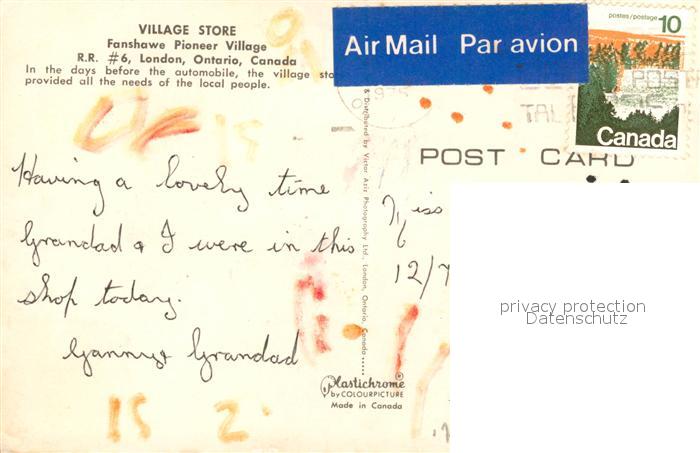 VILLAGE STORE
Fanshawe Pioneer Village
R.R. #6, London, Ontario, Canada
In the days before the automobile, the village sto
provided all the needs of the local people.
Air Mail Par avion
postes/postage 10
Canada
POST CARD
Having a lovely time
Grandad & I were in this
shop today.
Ganny & Grandad
Miss
12/7
& Distributed by Victor Aziz Photography Ltd., London, Ontario, Canada
Plastichrome®
by COLOURPICTURE
Made in Canada
15
15 2
privacy protection
Datenschutz